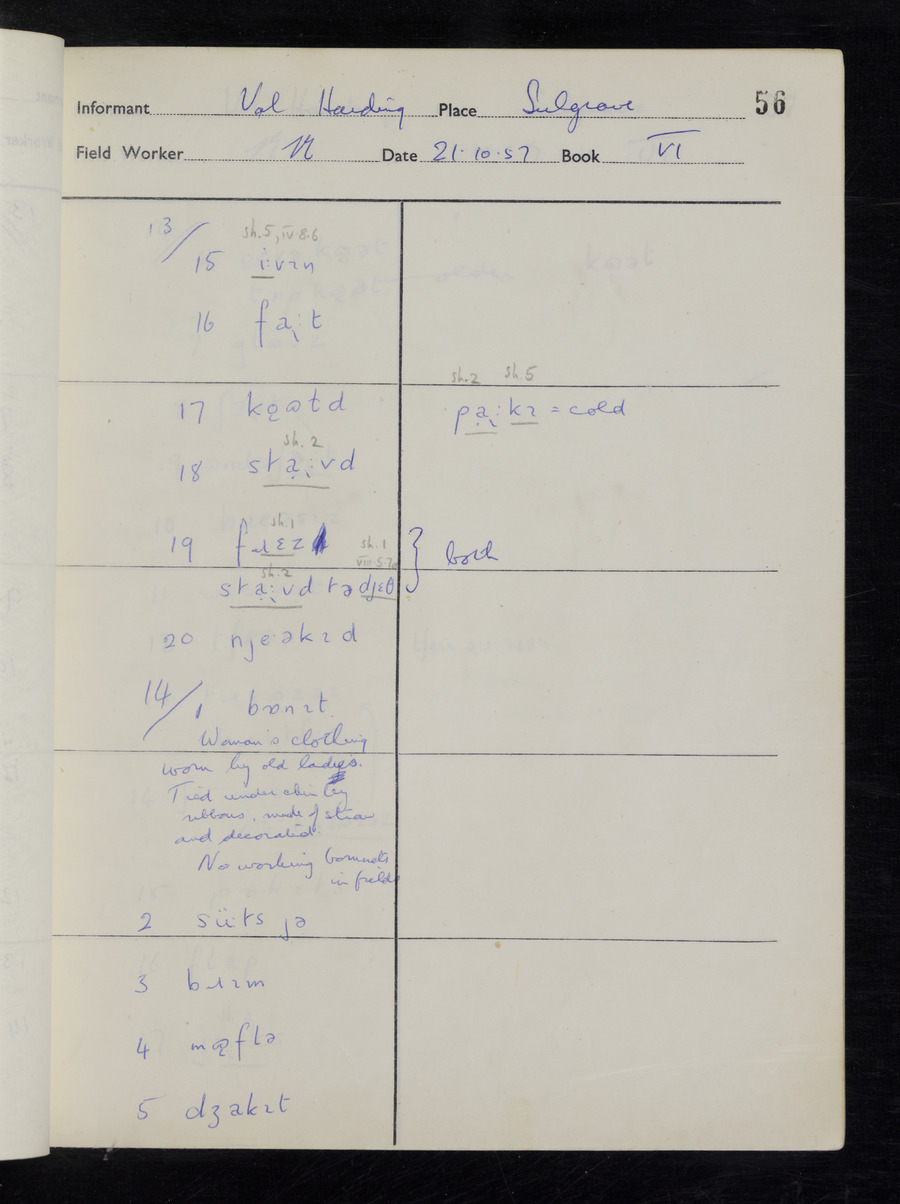 Informant Val Harding Place Sulgrave 56
Field Worker Date 21·10·57 Book VI
13/
sh.5, iv.8.6
15 i:vɪn
16 fa̱:t
sh.2 sh.5
17 pa̱:kɪ = cold
sh. 2
18 sta̱:vd
sh.1
19 fɹɛz } both
sh.1
sh.2 viii.5.7
sta̱:vd tə djɛθ
20 njeəkɪd
14/1 bɒnɪt
Woman's clothing
worn by old ladies.
Tied under chin by
ribbons, made of straw
and decorated.
No working bonnets
in fields
2 sü:ts jə
3 bɹɪm
4 mflə
5 dʒakɪt